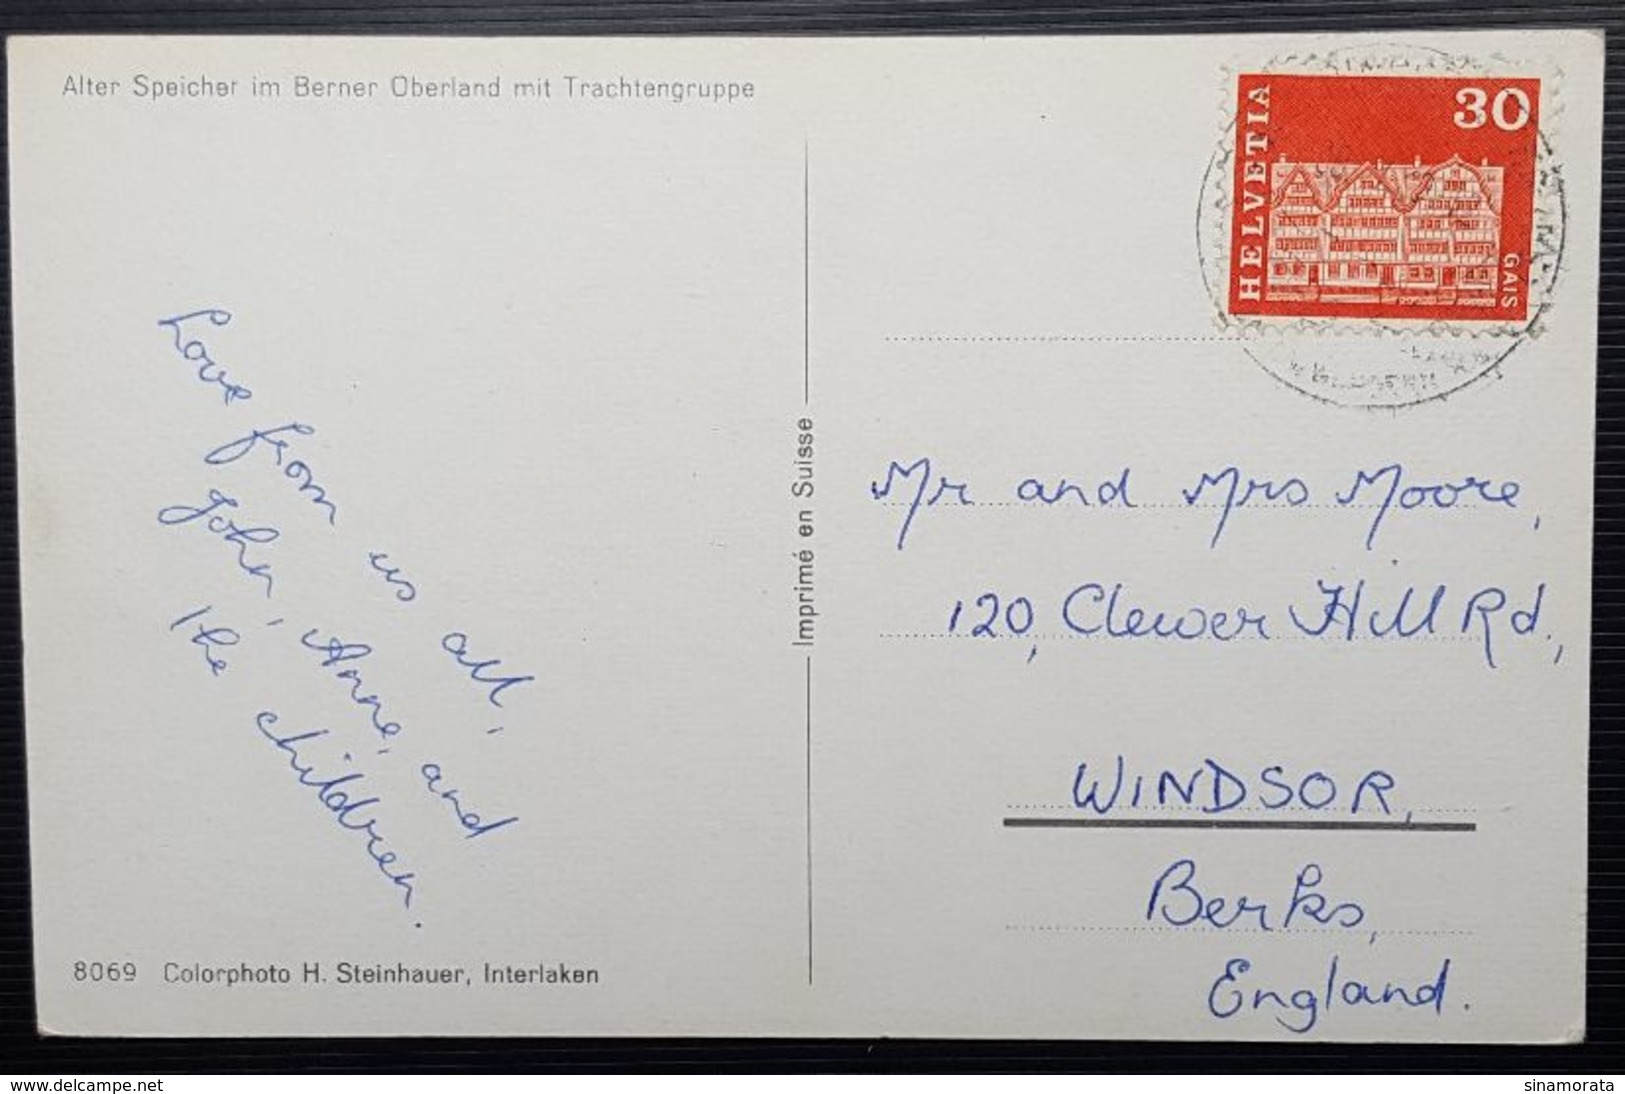 Alter Speicher im Berner Oberland mit Trachtengruppe
HELVETIA
30
GAIS
Love from us all,
John, Anne, and
the children.
Imprimé en Suisse
Mr and Mrs Moore,
120, Clewer Hill Rd,
WINDSOR,
Berks,
England.
8069 Colorphoto H. Steinhauer, Interlaken
www.delcampe.net
sinamorata